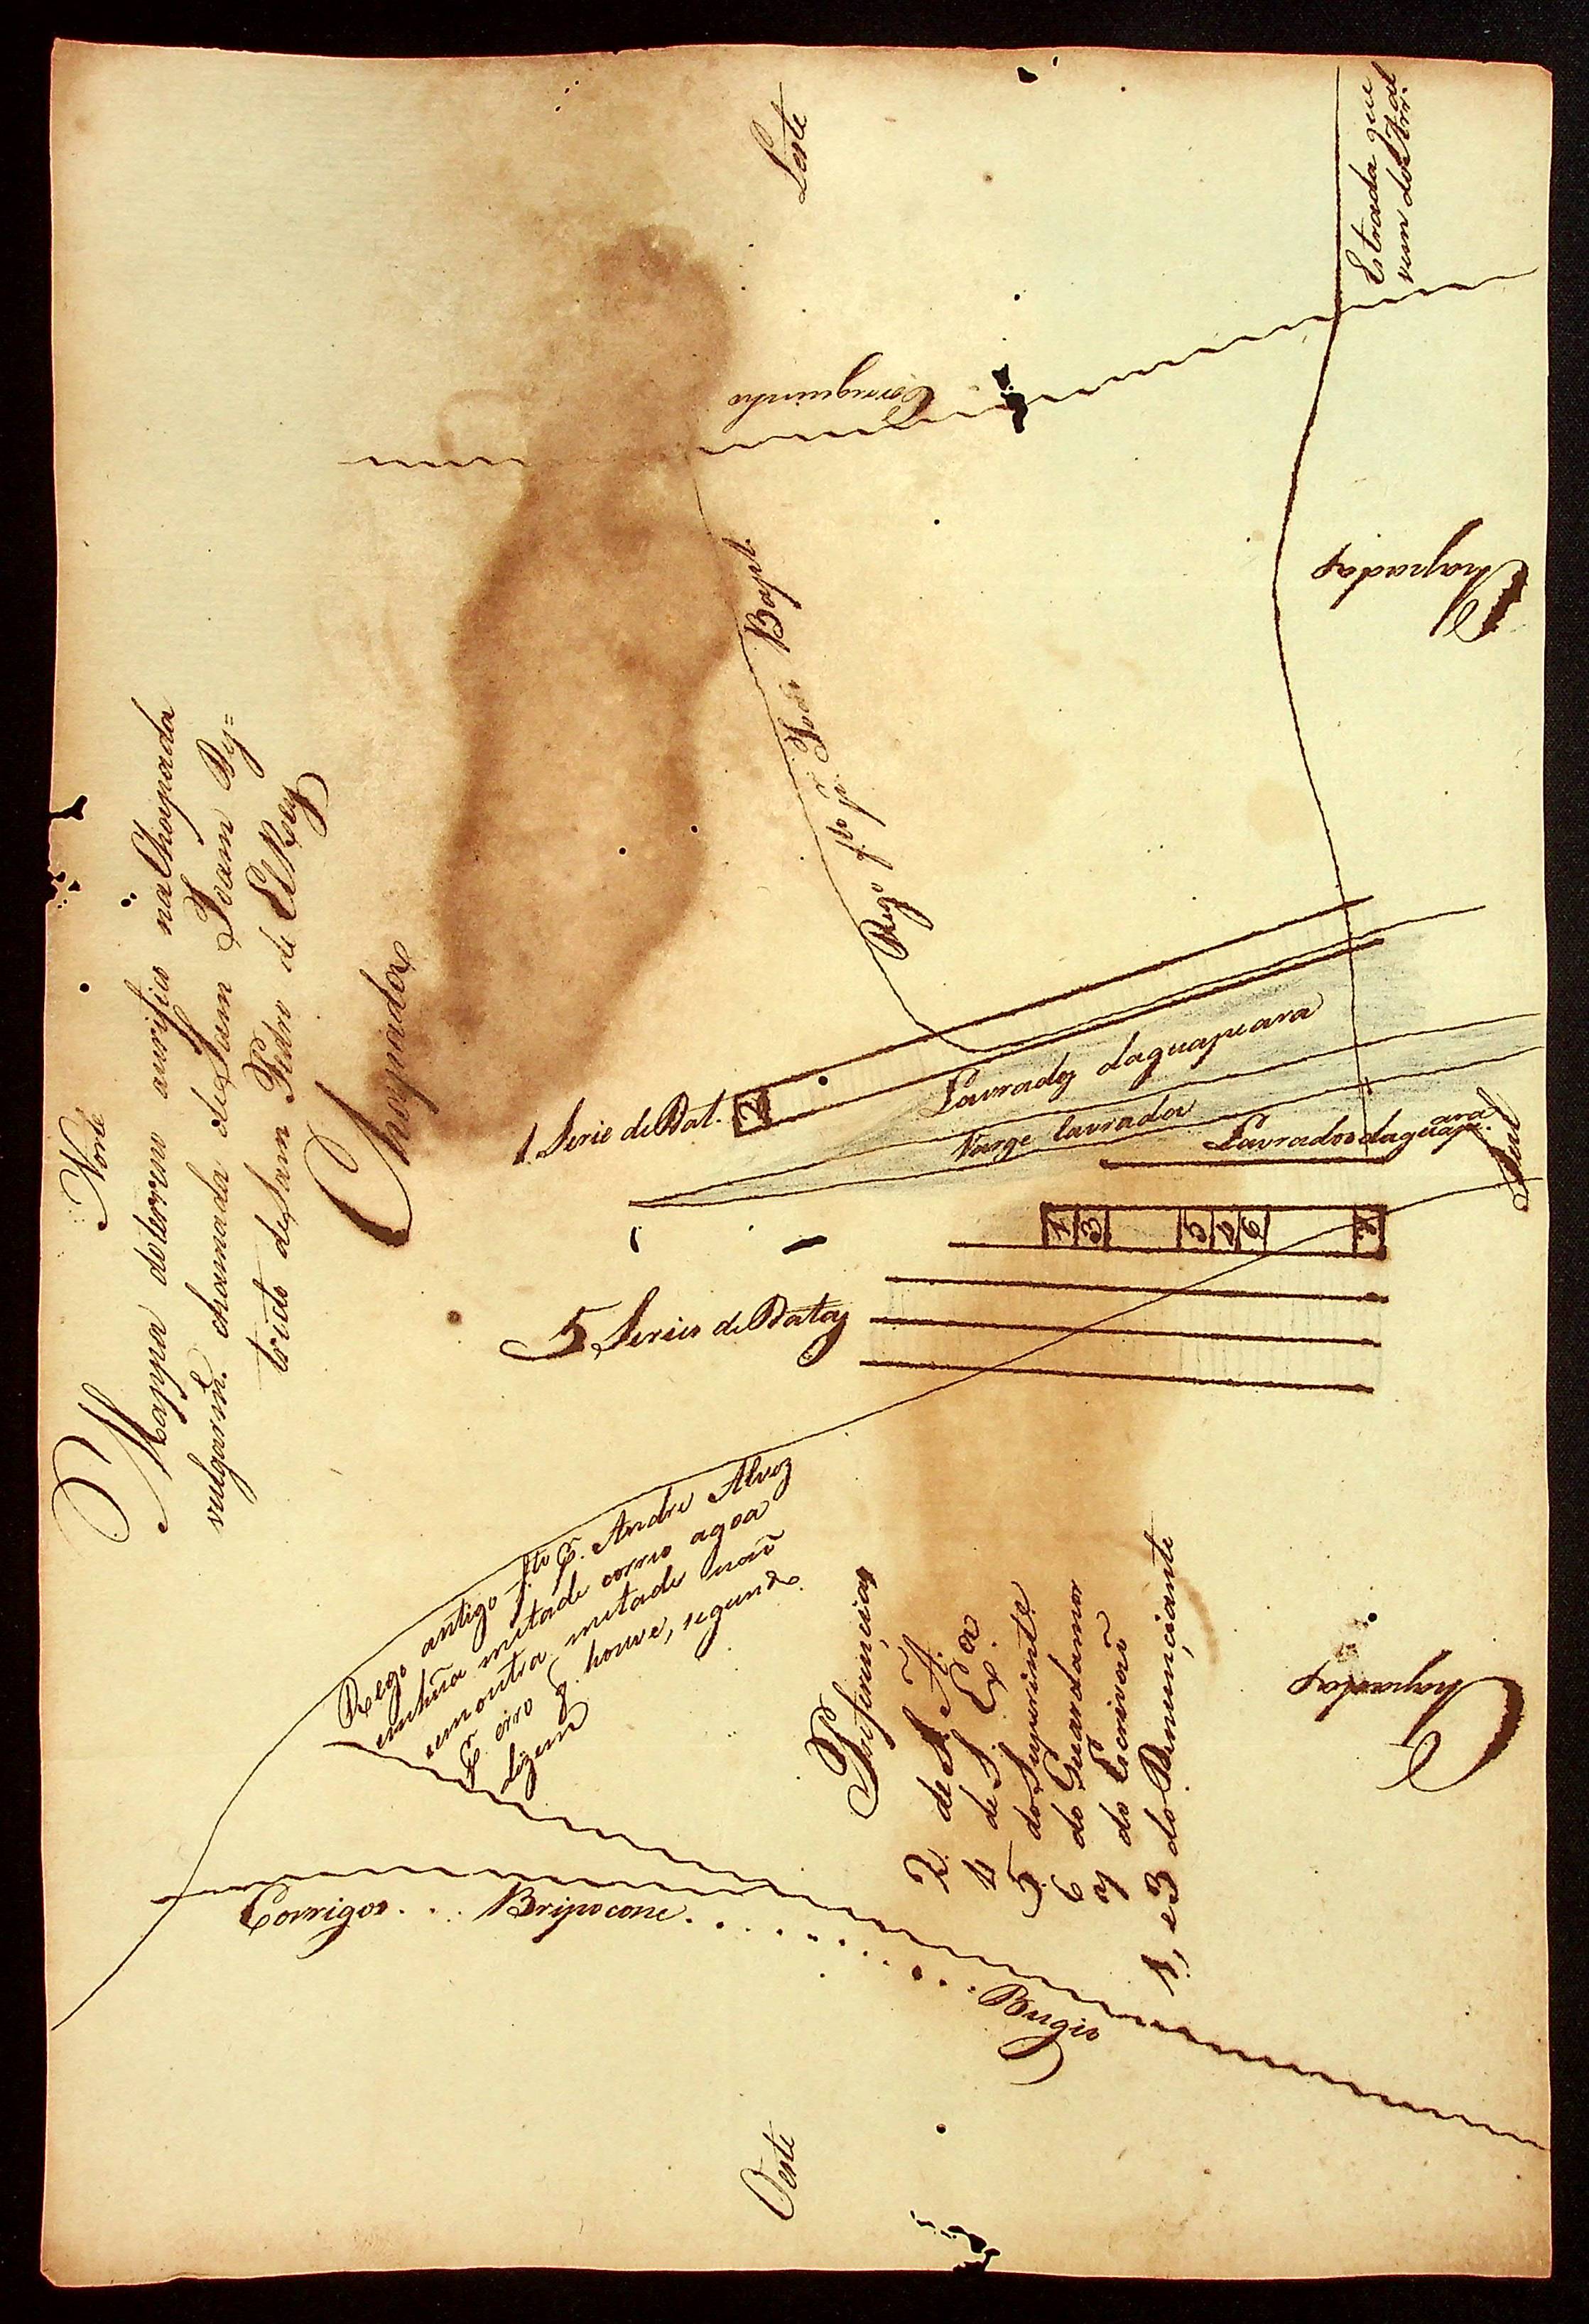 Norte
Mappa doterreno aurifico na Chapada
vulgarm.te chamada de Sam Joam Dy=
tricto de Sam Pedro de El Rey
Chapadas
Leste
Estrada que
vem do Arr.al
Correguinho
Chapadas
Rego f.to p.r João Bapt.
1 Serie de Dat.
2
Lavrados daguapeara
Varge lavrada
Lavrados daguape.
ara
Sul
1 3 5 4 6 7
5 Series de Datas
Rego antigo f.to p. Andre Alvez
enhũa metade correo agoa
em outra metade naõ
erro q. houve, segundo
dizem
Preferencias
2 de S. A.
4 de S. Ex.a
5 do Superint.e
6 do Guardamor
7 do Escrivaõ
1, e 3 do Denunciante
Chapadas
Corrigos . . . Bripocone . . . . . . . . . . . . Bugio
Oeste